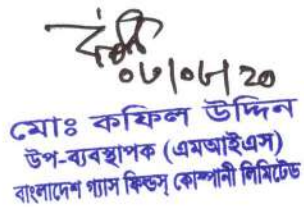 ০৮/০৮/২০
মোঃ কফিল উদ্দিন
উপ-ব্যবস্থাপক (এমআইএস)
বাংলাদেশ গ্যাস ফিল্ডস্ কোম্পানী লিমিটেড